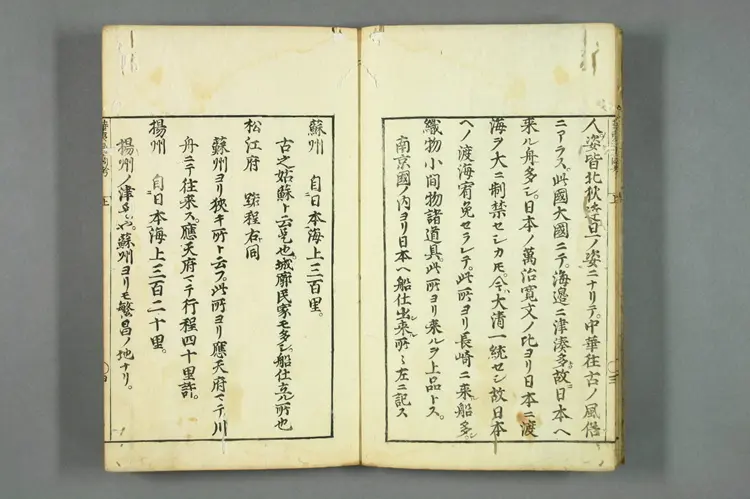 人姿皆北狄韃旦ノ姿ニナリテ。中華往古ノ風俗
ニアラス。此國大國ニテ。海邊ニ津湊多故日本ヘ
来ル舟多シ。日本ノ萬治寛文ノ比ヨリ日本ニ渡
海ヲ大ニ制禁セシカ𪜈。今大清一統セシ故日本
ヘノ渡海宥免セラレテ。此所ヨリ長崎ニ来船多シ
織物小间物諸道具。此所ヨリ来ルヲ上品トス。
南京國ノ内ヨリ日本ヘ船仕出来所〻左ニ記ス
蘇州 自日本海上三百里。
古之姑蘇ト云是也城廓民家モ多シ。船仕立ル所也
松江府 路程右同
蘇州ヨリ狹キ所ト云フ。此所ヨリ應天府マテ川
舟ニテ往来ス。應天府マテ行程四十里許。
揚州 自日本海上三百二十里。
揚州ノ津也。蘇州ヨリモ繁昌ノ地ナリ。